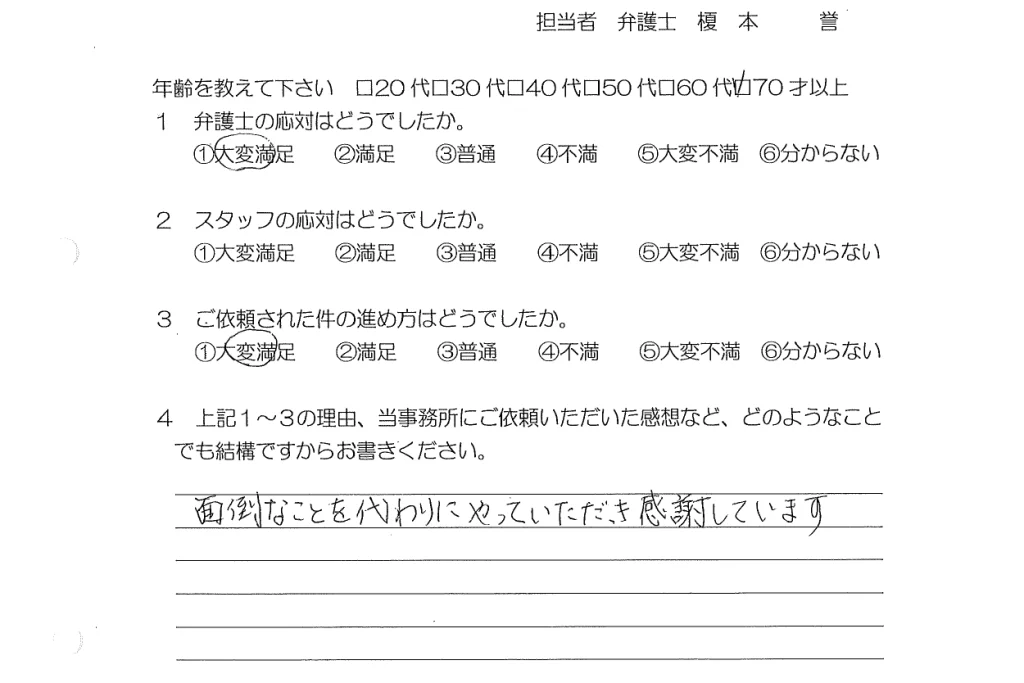 担当者　弁護士　榎　本　　　誉
年齢を教えて下さい　□20代□30代□40代□50代□60代□70才以上
1　弁護士の応対はどうでしたか。
①大変満足　②満足　③普通　④不満　⑤大変不満　⑥分からない
2　スタッフの応対はどうでしたか。
①大変満足　②満足　③普通　④不満　⑤大変不満　⑥分からない
3　ご依頼された件の進め方はどうでしたか。
①大変満足　②満足　③普通　④不満　⑤大変不満　⑥分からない
4　上記1～3の理由、当事務所にご依頼いただいた感想など、どのようなこと
でも結構ですからお書きください。
面倒なことを代わりにやっていただき感謝しています